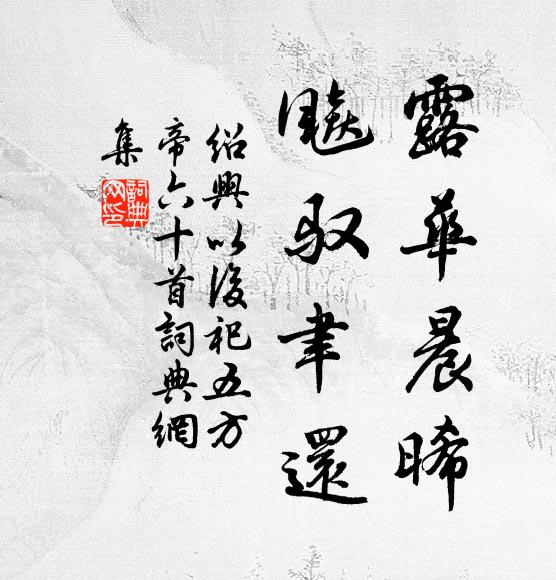 露華晨晞
飈馭聿還
紹興以後祀五方
帝六十首詞典網
集
詞典
网印